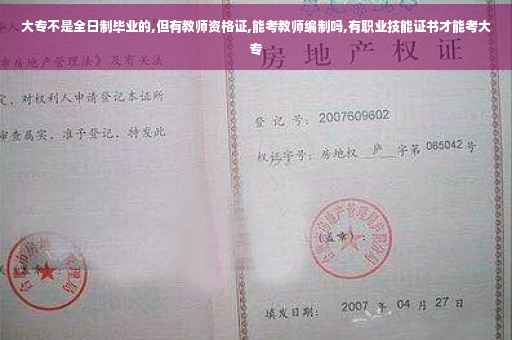 大专不是全日制毕业的,但有教师资格证,能考教师编制吗,有职业技能证书才能考大
专
房地产权证
市房地产管理法》及有关法
定、对权利人申请登记本证所
审查属实，准予登记，特发此
登 记 号： 2007609602
权证字号：房地权 庐 字第 065042 号
(盖章)：
填发日期： 2007 年 04 月 27 日